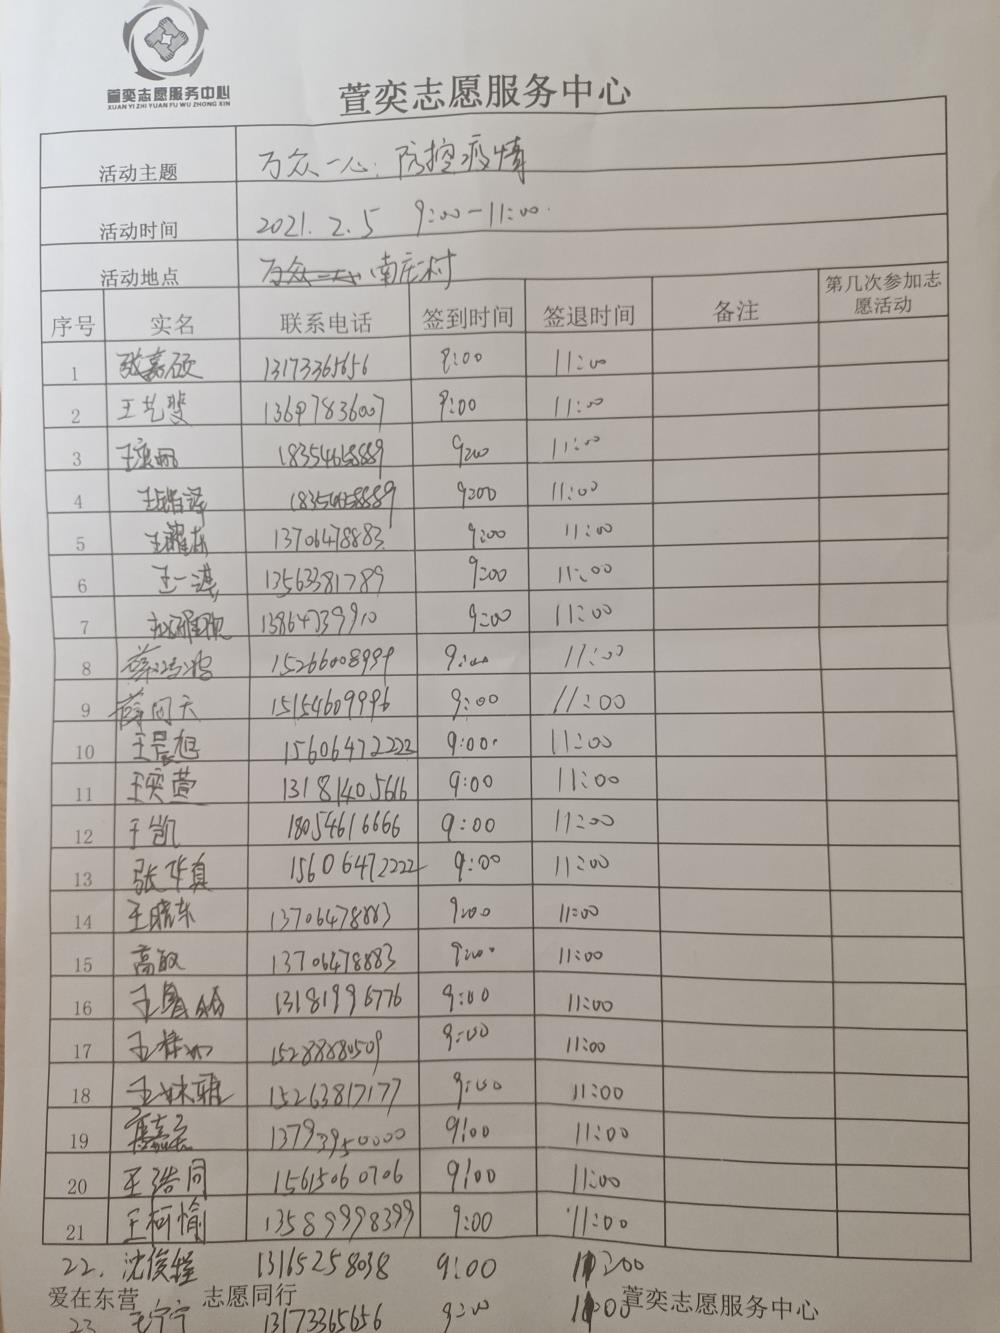 萱奕志愿服务中心
XUAN YI ZHI YUAN FU WU ZHONG XIN
萱奕志愿服务中心
活动主题 万众一心.防控疫情
活动时间 2021.2.5 9:00-11:00.
活动地点 南庄村
序号 实名 联系电话 签到时间 签退时间 备注 第几次参加志愿活动
1 张嘉硕 13173365656 9:00 11:00
2 王艺斐 13697836007 9:00 11:00
3 18354658889 9:00 11:00
4 18354658889 9:00 11:00
5 王耀东 13706478883 9:00 11:00
6 王一 13563381789 9:00 11:00
7 13864739910 9:00 11:00
8 15266008999 9:00 11:00
9 薛问天 15154609996 9:00 11:00
10 王晨旭 15606472222 9:00 11:00
11 王奕萱 13181405616 9:00 11:00
12 于凯 18054616666 9:00 11:00
13 张华真 15606472222 9:00 11:00
14 王晓东 13706478883 9:00 11:00
15 高敏 13706478883 9:00 11:00
16 王 13181996776 9:00 11:00
17 王 15288880509 9:00 11:00
18 王 15263817177 9:00 11:00
19 13793950000 9:00 11:00
20 王浩同 15615060706 9:00 11:00
21 王柯愉 13589998399 9:00 11:00
22. 沈俊程 13165258038 9:00 11:00
爱在东营 志愿同行 萱奕志愿服务中心
23 王宁宁 13173365656 9:00 11:00